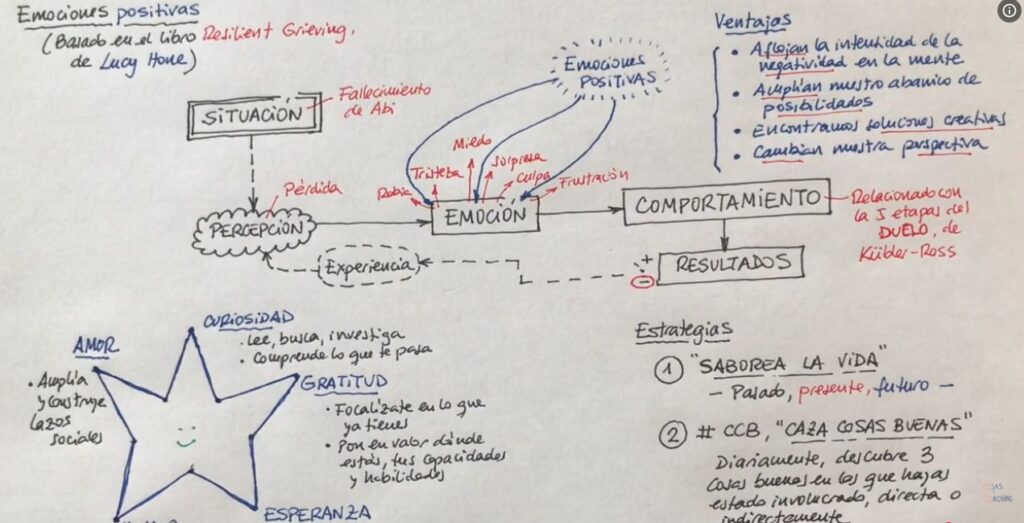 Emociones positivas
(Basado en el libro Resilient Grieving,
de Lucy Hone)
SITUACIÓN
Fallecimiento
de Abi
Emociones
POSITIVAS
Ventajas
• Aflojan la intensidad de la
negatividad en la mente
• Amplían nuestro abanico de
posibilidades
• Encontramos soluciones creativas
• Cambian nuestra perspectiva
Pérdida
PERCEPCIÓN
Rabia
Tristeza
Miedo
Sorpresa
Culpa
Frustración
EMOCIÓN
COMPORTAMIENTO
Relacionado con
la 5 etapas del
DUELO, de
Kübler-Ross
Experiencia
+
-
RESULTADOS
CURIOSIDAD
• Lee, busca, investiga
• Comprende lo que te pasa
AMOR
• Amplía
y construye
lazos
sociales
GRATITUD
• Focalízate en lo que
ya tienes
• Pon en valor dónde
estás, tus capacidades
y habilidades
ESPERANZA
Estrategias
1 "SABOREA LA VIDA"
- Pasado, presente, futuro -
2 # CCB, "CAZA COSAS BUENAS"
Diariamente, descubre 3
cosas buenas en los que hayas
estado involucrado, directa o
indirectamente